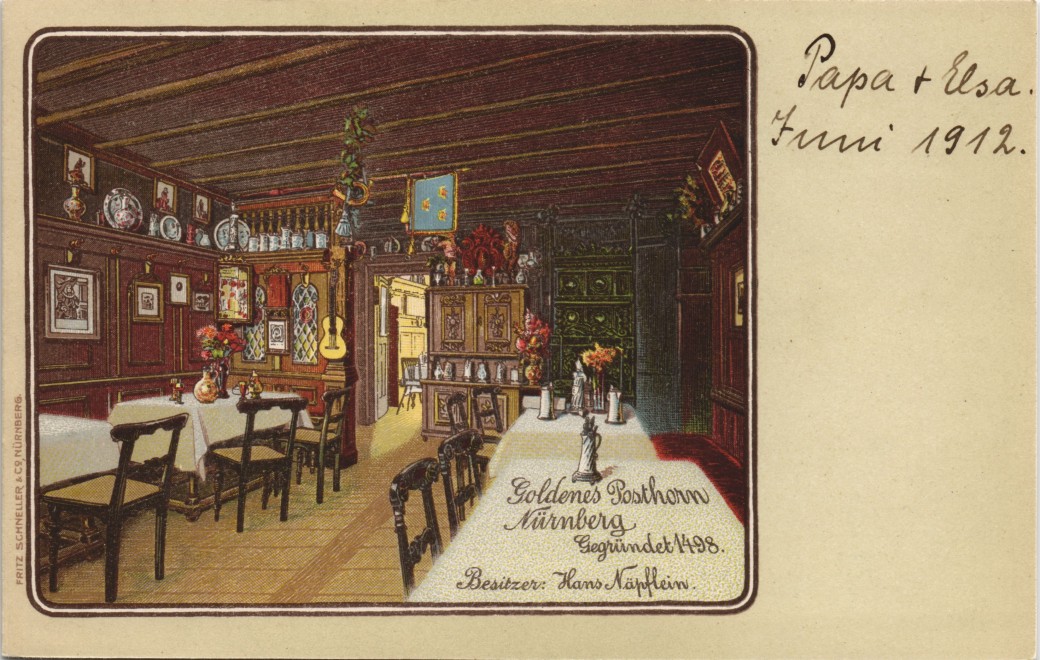 Papa + Elsa.
Juni 1912.
Goldenes Posthorn
Nürnberg
Gegründet 1498.
Besitzer: Hans Näpflein.
FRITZ SCHNELLER & CO, NÜRNBERG.